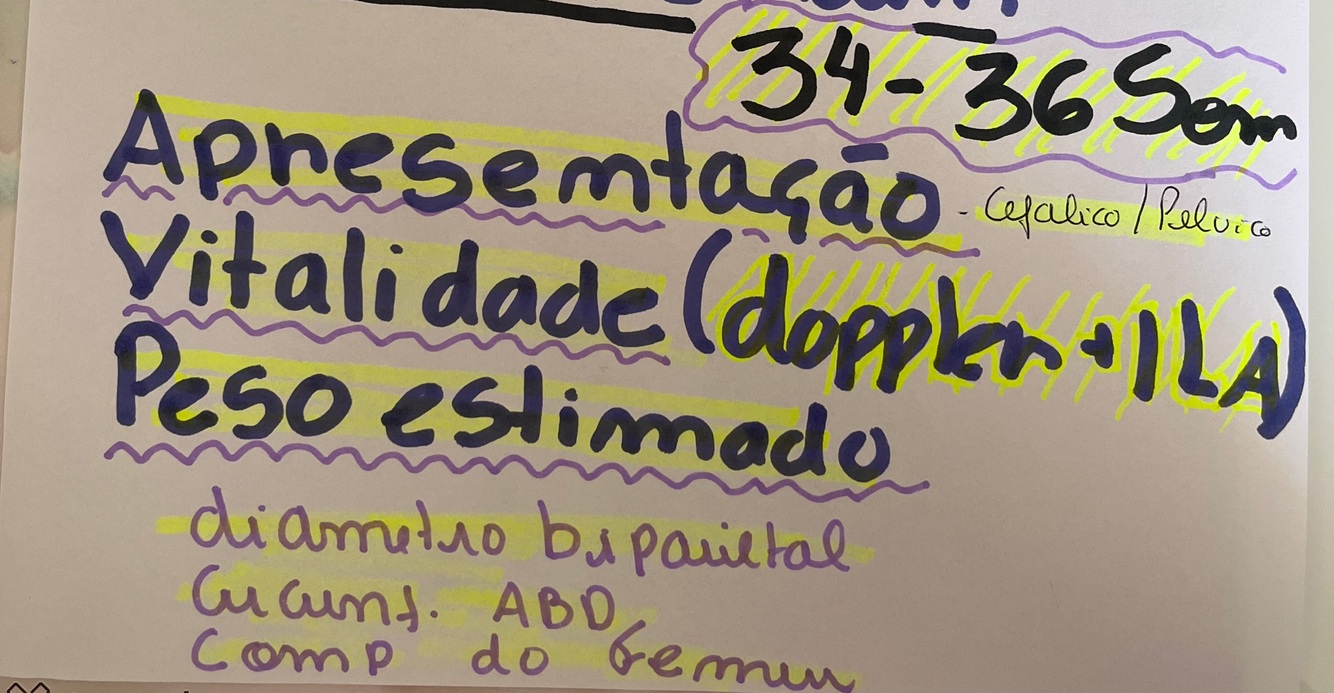 34-36 Sem
Apresemtação - Cefalico / Pelvico
Vitalidade (doppler + ILA)
Peso estimado
diametro biparietal
Circunf. ABD
Comp do Femur